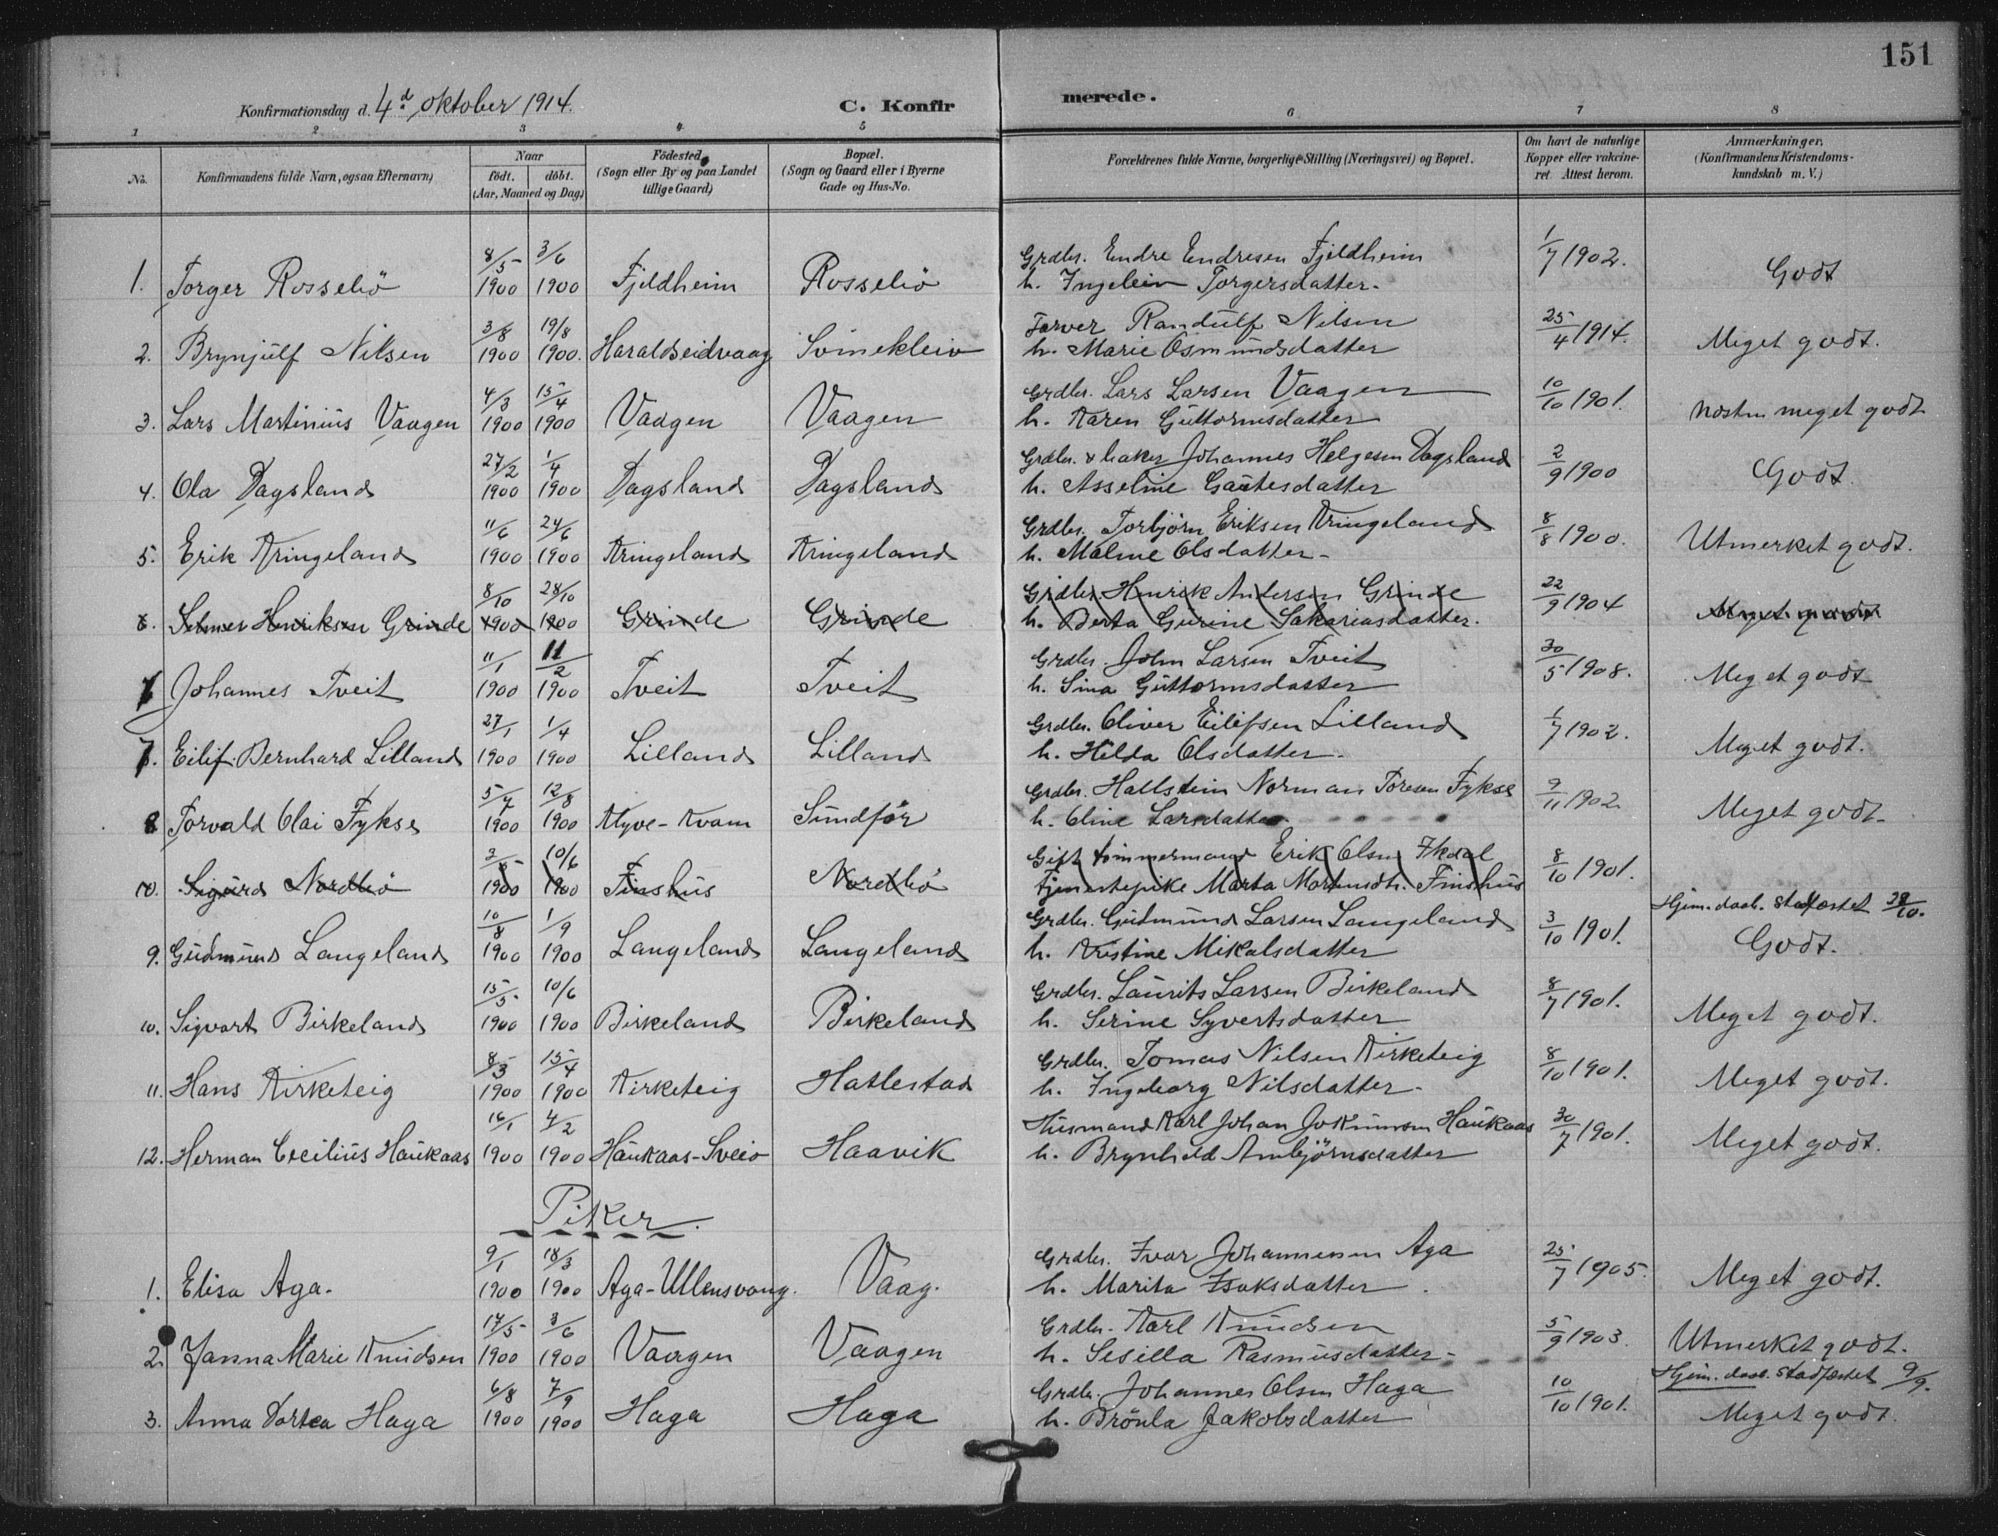 151
Konfirmationsdag d. 4d oktober 1914.
C. Konfirmerede.
1 2 3 4 5 6 7 8
No. Konfirmandens fulde Navn, ogsaa Efternavn) Naar födt. döbt. (Aar, Maaned og Dag) Födested (Sogn eller By og paa Landet tillige Gaard) Bopæl. (Sogn og Gaard eller i Byerne Gade og Hus-No. Forældrenes fulde Navne, borgerlige Stilling (Næringsvei) og Bopæl. Om havt de naturlige Kopper eller vakcineret. Attest herom. Anmærkninger, (Konfirmandens Kristendomskundskab m. V.)
8/5 3/6 Grdbr. Endre Endresen Fjeldheim 1/7 1902.
1. Torger Rossebö 1900 1900 Fjeldheim Rossebö h. Ingeleiv Torgersdatter. Godt
3/8 19/8 Farver Randulf Nilsen 25/4 1914.
2. Brynjulf Nilsen 1900 1900. Haraldseidvaag Svinekleiv h. Marie Osmundsdatter Meget godt.
4/3 15/4 Grdbr. Lars Larsen Vaagen 10/10 1901.
3. Lars Martinius Vaagen 1900 1900 Vaagen Vaagen h. Karen Guttormsdatter Næsten meget godt
27/2 1/4 Grdbr. & baker Johannes Helgesen Dagsland 2/9 1900
4. Ola Dagsland 1900 1900 Dagsland Dagsland h. Asseline Gautesdatter Godt.
11/6 24/6 Grdbr. Torbjörn Eriksen Kringeland 8/8 1900.
5. Erik Kringeland 1900 1900 Kringeland Kringeland h. Malene Olsdatter Utmerket godt.
8/10 28/10 Grdbr. Henrik Andersen Grinde 22/9 1904
6. Selmer Henriksen Grinde 1900 1900 Grinde Grinde h. Berta Gurine Sakariasdatter. Meget godt
11/1 11/2 Grdbr. John Larsen Tveit 30/5 1908.
6 Johannes Tveit 1900 1900 Tveit Tveit h. Sina Guttormsdatter Meget godt
27/1 1/4 Grdbr. Oliver Eilifsen Lilland 1/7 1902.
7. Eilif Bernhard Lilland 1900 1900 Lilland Lilland h. Helda Olsdatter. Meget godt.
5/7 12/8 Grdbr. Hallstein Norman Toresen Fykse 9/11 1902
8 Torvald Olai Fykse 1900 1900 Klyve-Kvam Sundför h. Oline Larsdatter Meget godt.
3/5 10/6 Gift tömmermand Erik Olsen Ekdal 8/10 1901.
10. Sigurd Nordbö 1900 1900 Finshus Nordbö tjenestepike Marta Mortensdtr. Finshus
10/8 1/9 Grdbr. Gudmund Larsen Langeland 3/10 1901. Hjem. daab. stadfæstet 28/10.
9. Gudmund Langeland 1900 1900 Langeland Langeland h. Kristine Mikalsdatter Godt.
15/5 10/6 Grdbr. Laurits Larsen Birkeland 8/7 1901.
10. Sigvart Birkeland 1900 1900 Birkeland Birkeland h. Serine Syvertsdatter Meget godt.
8/3 15/4 Grdbr. Tomas Nilsen Kirketeig 8/10 1901.
11. Hans Kirketeig 1900 1900 Kirketeig Hatlestad h. Ingeborg Nilsdatter. Meget godt.
16/1 4/2 Husmand Karl Johan Jokumsen Haukaas 30/7 1901.
12. Herman Cecilius Haukaas 1900 1900 Haukaas-Sveio Haavik h. Brynhild Ambjörnsdatter Meget godt.
Piker.
9/1 18/3 Grdbr. Ivar Johannesen Aga 25/7 1905.
1. Elisa Aga. 1900 1900 Aga-Ullensvang. Vaag. h. Marita Isaksdatter Meget godt.
17/5 3/6 Grdbr. Karl Knudsen 5/9 1903.
2. Janna Marie Knudsen 1900 1900 Vaagen Vaagen h. Sesilla Rasmusdatter Utmerket godt.
6/8 7/9 Grdbr. Johannes Olsen Haga 10/10 1901. Hjem. daab. stadfæstet 9/9.
3. Anna Dortea Haga 1900 1900 Haga Haga h. Brönla Jakobsdatter Meget godt.